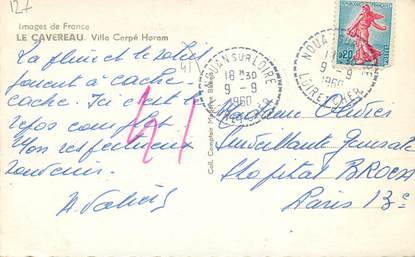 127
Images de France
LE CAVEREAU. Villa Carpé Horam
La pluie et le soleil
jouent à cache-
cache. Ici c'est le
repos complet
Mon respectueux
souvenir.
41
41
NOUAN SUR LOIRE
18 H 30
9 - 9
1960
LOIR ET CHER
NOUAN
9 - 9
1960
LOIR ET CHER
0,20
Madame Olivier
Surveillante Générale
Hopital BROCA
Paris 13e